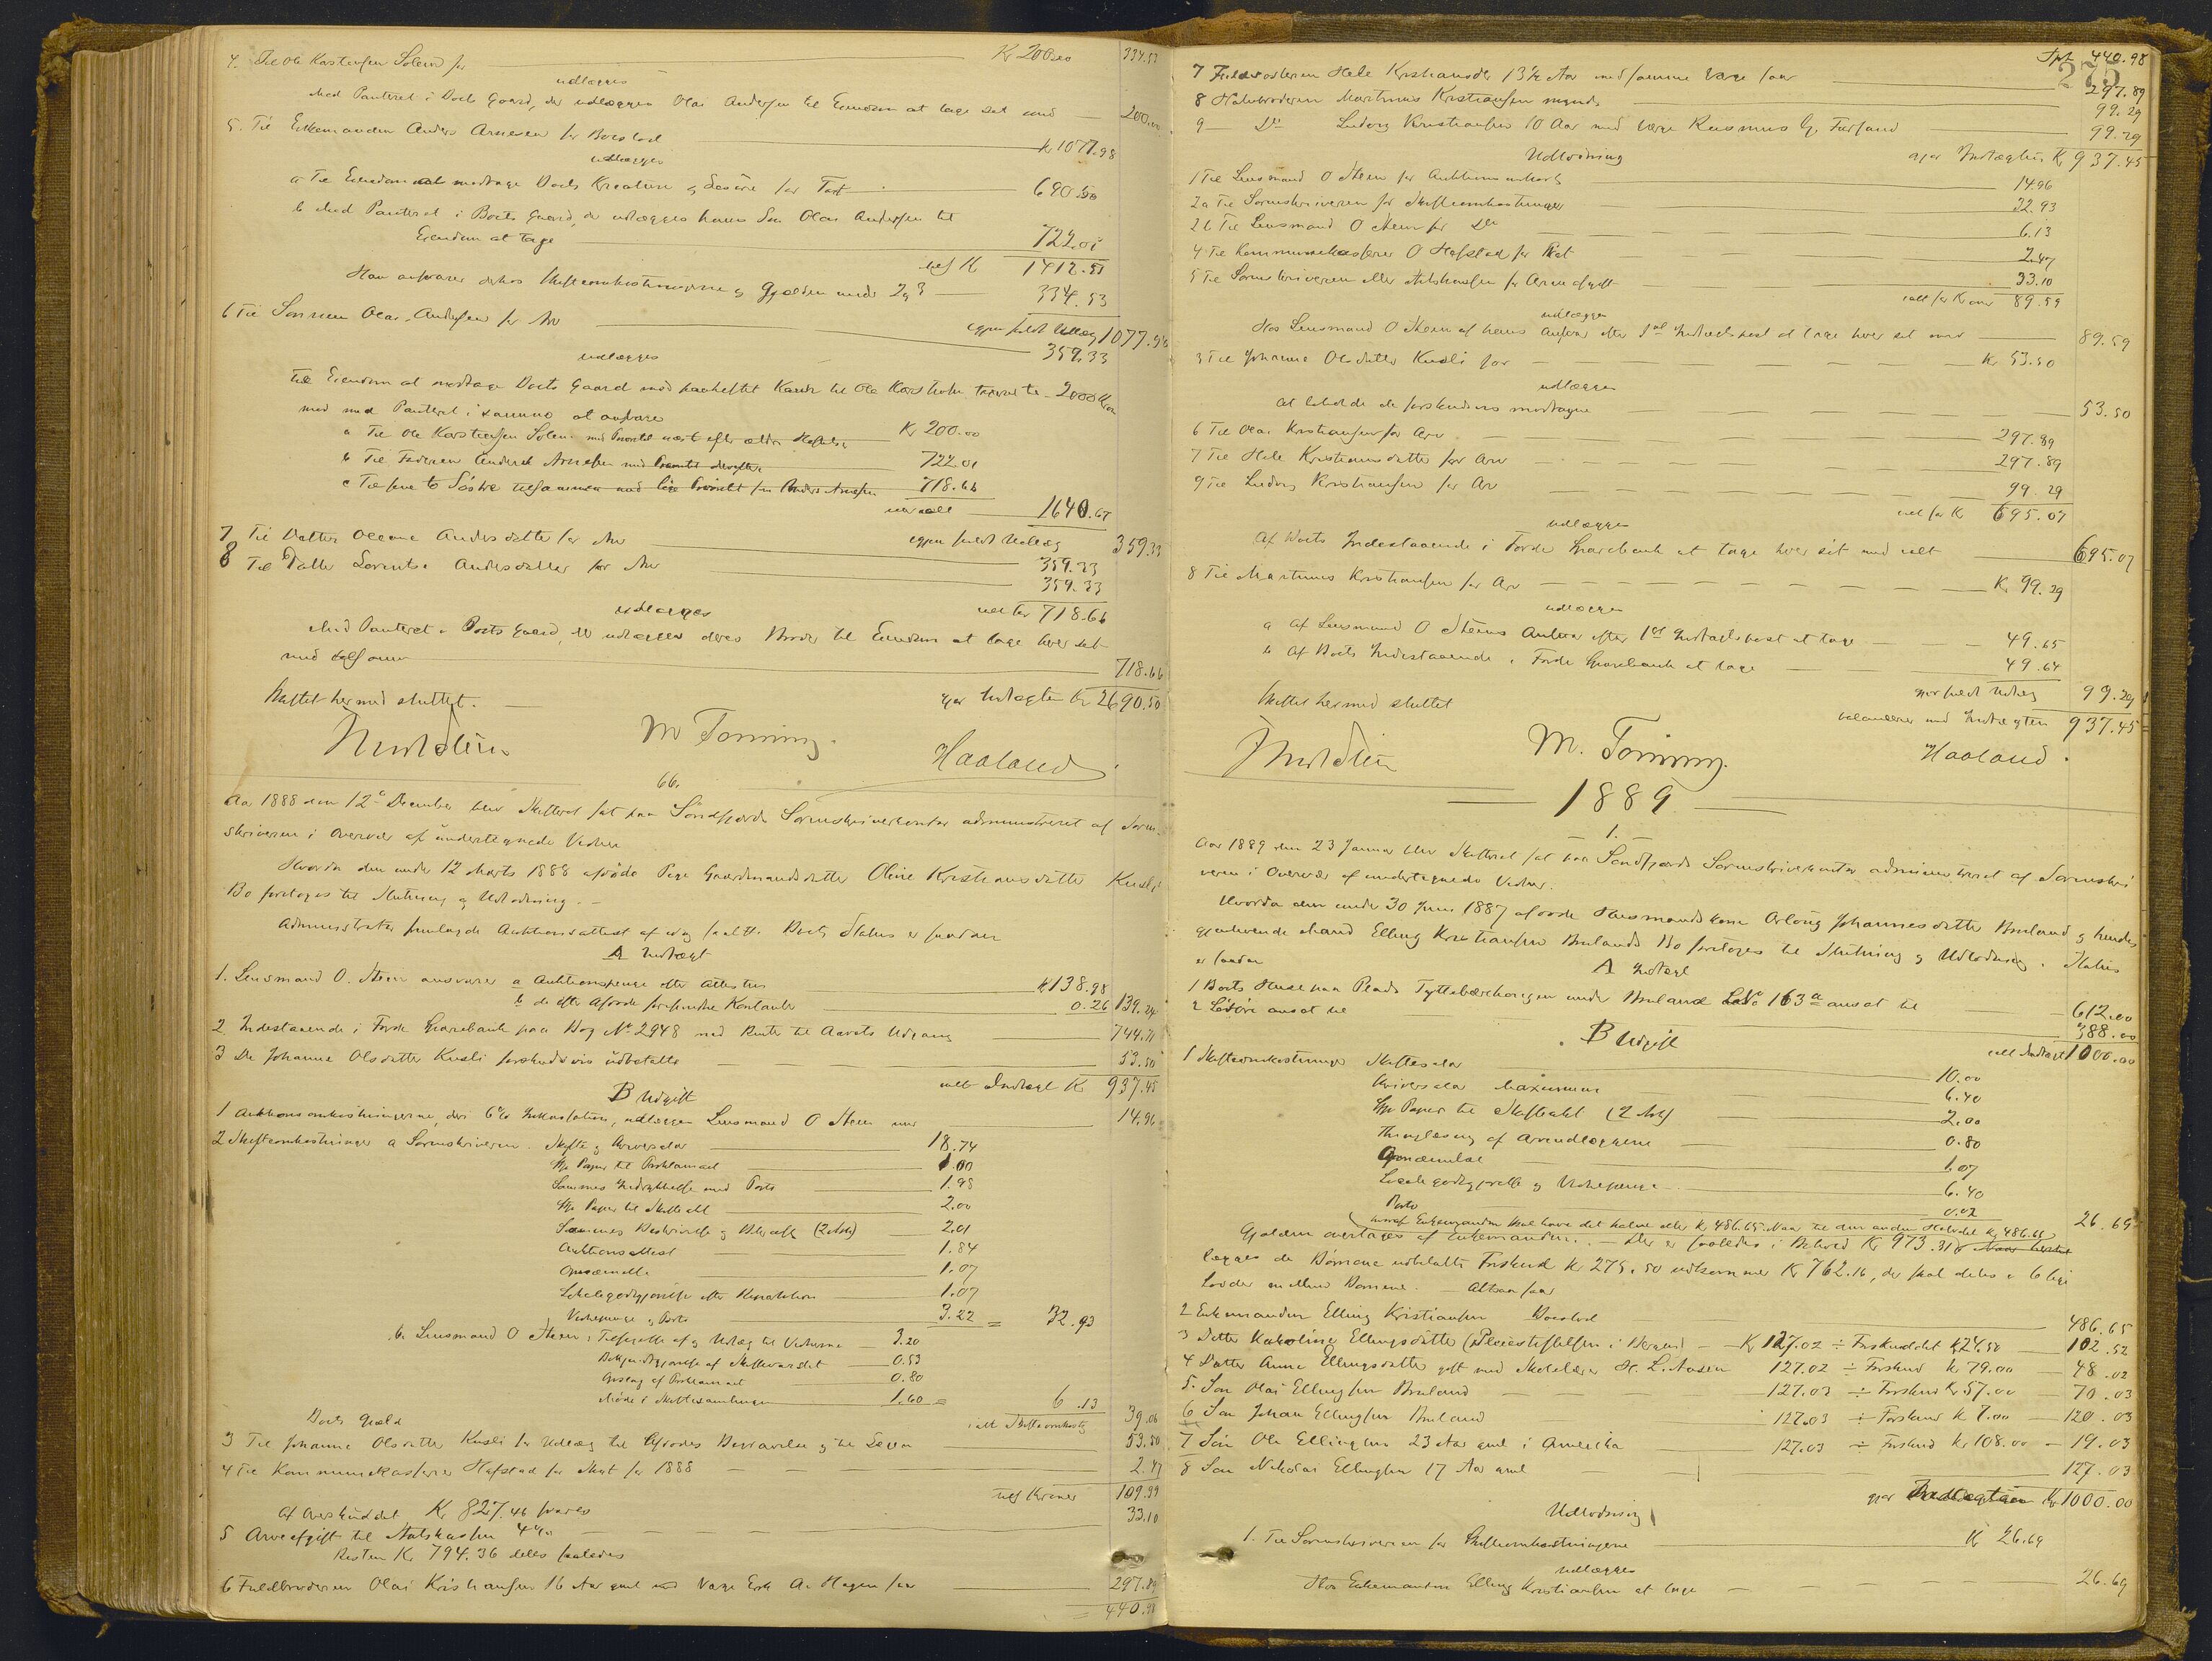 4. Til Ole Karstensen Solem for — Kr 200.00 334.53
udlægges
Med Panteret i Boets Gaard, der udlægges Olai Andersen til Eiendom at tage sit med — 200.00
5. Til Enkemanden Anders Arnesen for Boeslod — Kr 1077.98
udlægges
a Til Eiendom at modtage Boets Kreaturer og Løsøre for Taxt — 690.50
b Med Panteret i Boets Gaard, der udlægges hans Søn Olai Andersen til
Eiendom at tage — 722.01
tils K 1412.51
Han ansvarer derhos Skifteomkostningerne og Gjælden under 2 og 3 — 334.53
igjen fuldt Udlæg 1077.98
6 Til Sønnen Olai Andersen for Arv — 359.33
udlægges
Til Eiendom at modtage Boets Gaard med paaheftet Kaar til Ole Karstensen taxeret til 2000 Kroner
mod med Panteret i samme at ansvare
a Til Ole Karstensen Solem med Prioritet næst efter ældre Heftelser Kr 200.00
b Til Faderen Anders Arnesen med Prioritet derefter 722.01
c Til sine to Søstre tilsammen med lige Prioritet som Anders Arnesen 718.66
udgjør 1640.67
igjen fuldt Udlæg 359.33
7 Til Datter Oleane Andersdatter for Arv — 359.33
8 Til Datter Lorentse Andersdatter for Arv — 359.33
ialt Kr 718.66
udlægges
Med Panteret i Boets Gaard, der udlægges deres Broder til Eiendom at tage hver sit
med — 718.66
Skiftet hermed sluttet. — gjør Indtægten Kr 2690.50
M Torning. Haaland
66.
Aar 1888 den 12te December blev Skifteret sat paa Søndfjords Sorenskriverkontor administreret af Soren-
skriveren i Overvær af undertegnede Vidner
Hvorda den under 12 Marts 1888 afdøde Pige Gaardmandsdatter Oline Kristiansdatter Kusli
Bo foretoges til Slutning og Udlodning. —
Administrator fremlagde Auktionsattest af idag saalt. Boets Status er saadan
A Indtægt
1. Lensmand O. Steen ansvarer a Auktionspenge efter Attesten — Kr 138.98
b de efter Afdøde forefundne Kontanter — 0.26 139.24
2 Indestaaende i Førde Sparebank paa Bog No 2948 med Renter til Aarets Udgang — 744.71
3 De Johanne Olsdatter Kusli forskudsvis udbetalte — 53.50
ialt Indtægt K 937.45
B Udgift
1 Auktionsomkostningerne, deri 6% Inkassation, udlægges Lensmand O Steen med 14.96
2 Skifteomkostninger a Sorenskriveren. Skifte og Skriversalær — 18.74
Stp Papir til Proklamaet — 1.00
Sammes Indrykkelse med Porto — 1.98
Stp Papir til Skifteakt — 2.00
Sammes Beskrivelse og Bekræft (2 Ark) — 2.01
Auktionsattest — 1.84
Opnævnelse — 1.07
Lokalegodtgjørelse efter Repartition — 1.07
Vidnepenge og Porto — 3.22 = 32.93
b. Lensmand O Steen: Tilsigelse af og Udlæg til Vidnerne — 3.20
Bekjendtgjørelse af Skiftevarslet — 0.53
Opslag af Proklamaet — 0.80
Møde i Skiftesamlingen — 1.60 = 6.13
ialt Skifteomkostg 39.06
Boets Gjæld
3 Til Johanne Olsdatter Kusli for Udlæg til Afdødes Begravelse og til Lægen — 53.50
4 Til Kommunekasserer Hafstad for Skat for 1888 — 2.47
tils Kroner 109.99
Af Overskuddet Kr 827.46 svares
5 Arveafgift til Statskassen 4% — 33.10
Resten Kr 794.36 deles saaledes
6 Fuldbroderen Olai Kristiansen 16 Aar gml med Værge A. Hagen faar — 297.89
= 440.98
Tpt 440.98
275
7 Fuldsøsteren Hele Kristiansdtr 13½ Aar med samme Værge faar — 297.89
8 Halvbroderen Martinus Kristiansen myndig — 99.29
9 — Do Ludvig Kristiansen 10 Aar med Værge Rasmus Førsund — 99.29
gjør Indtægten K 937.45
Udlodning
1 Til Lensmand O Steen for Auktionsomkost — 14.96
2a Til Sorenskriveren for Skifteomkostninger — 32.93
2b Til Lensmand O Steen for Do — 6.13
4 Til Kommunekasserer O Hafstad for Skat — 2.47
5 Til Sorenskriveren eller Statskassen for Arveafgift — 33.10
ialt for Kroner 89.59
udlægges
Hos Lensmand O Steen af hans Ansvar efter 1ste Indtægtspost at tage hver sit med — 89.59
3 Til Johanne Olsdatter Kusli for — Kr. 53.50
udlægges
At beholde de forskudsvis modtagne — 53.50
6 Til Olai Kristiansen for Arv — 297.89
7 Til Hele Kristiansdatter for Arv — 297.89
9 Til Ludvig Kristiansen for Arv — 99.29
ialt for K 695.07
udlægges
Af Boets Indestaaende i Førde Sparebank at tage hver sit med ialt — 695.07
8 Til Martinus Kristiansen for Arv — Kr 99.29
udlægges
a Af Lensmand O Steens Ansvar efter 1ste Indtægtspost at tage — 49.65
b Af Boets Indestaaende i Førde Sparebank at tage — 49.64
gjør fuldt Udlæg 99.29
Skiftet hermed sluttet
balancerer med Indtægten 937.45
M. Torning. Haaland.
1889
1.
Aar 1889 den 23 Januar blev Skifteret sat paa Søndfjords Sorenskriverkontor administreret af Sorenskri
veren i Overvær af undertegnede Vidner.
Hvorda den under 30 Juni 1887 afdøde Husmandskone Johannesdatter Bruland og hendes
gjenlevende Mand Elling Kristiansen Brulands Bo foretoges til Slutning og Udlodning. Status
er saadan
A Indtægt
1 Boets Huse paa Plads Tyttebærhaugen under Bruland LNo 163a ansat til — 612.00
2 Løsøre ansat til — 388.00
ialt Indtægt 1000.00
B Udgift
1 Skifteomkostninger Skiftesalær — 10.00
Skriversalær Maximum — 6.40
Stp Papir til Skifteakt (2 Ark) — 2.00
Thinglæsning af Arveudlæggene — 0.80
Opnævnelse — 1.07
Lokalegodtgjørelse og Vidnepenge — 6.40
Porto — 0.02 26.69
hvoraf Enkemanden skal have det halve eller Kr 486.65. Naar til den anden Halvdel Kr 486.66
Gjælden overtages af Enkemanden. — Der er saaledes i Behold Kr 973.31
lægges de Børnene udbetalte Forskud Kr 275.50 udkommer Kr 762.16, der skal deles i 6 lige
Lodder mellem Børnene. — Altsaa faar
2 Enkemanden Elling Kristiansen Boeslod — 486.65
3 Datter Karoline Ellingsdatter (Pleiestiftelsen i Bergen) — Kr 127.02 ÷ Forskuddet Kr 24.50 — 102.52
4 Datter Anne Ellingsdatter gift med Skolelærer H. L. Aasen 127.02 ÷ Forskud Kr 79.00 — 48.02
5. Søn Olai Ellingsen Bruland — 127.03 ÷ Forskud Kr 57.00 — 70.03
6 Søn Johan Ellingsen Bruland — 127.03 ÷ Forskud K 7.00 — 120.03
7 Søn Ole Ellingsen 23 Aar gml i Amerika — 127.03 ÷ Forskud Kr 108.00 — 19.03
8 Søn Nikolai Ellingsen 17 Aar gml — 127.03
gjør Indtægten Kr 1000.00
Udlodning
1. Til Sorenskriveren for Skifteomkostningerne — K 26.69
udlægges
Hos Enkemanden Elling Kristiansen at tage — 26.69